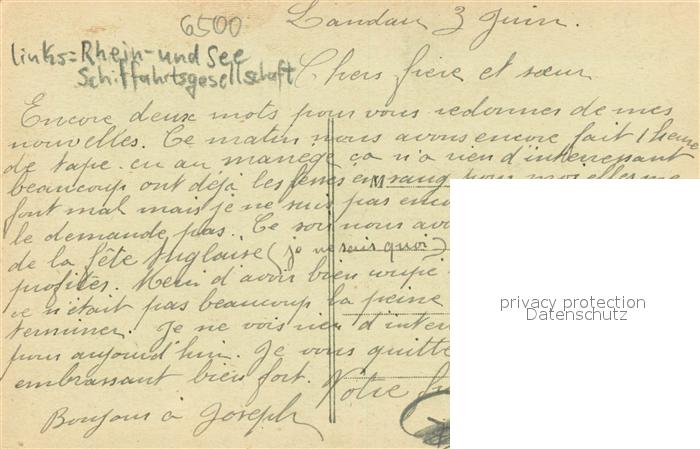 6500
Landau 3 Juin.
links = Rhein- und See
Schiffahrtsgesellschaft
Chers frère et sœur
Encore deux mots pour vous redonner de mes
nouvelles. Ce matin nous avons encore fait 1 heure
de tape cu au manège ça n'a rien d'interressant
beaucoup ont déjà les fesses en sang pour moi elles me
M
font mal mais je ne suis pas enco
le demande pas. Ce soir nous avo
de la fête Anglaise (je ne sais quoi)
profiter. Merci d'avoir bien
ce n'était pas beaucoup la peine
terminer. Je ne vois rien d'inter
pour aujourd'hui. Je vous quitte
embrassant bien fort. Votre
Bonjour à Joseph
privacy protection
Datenschutz